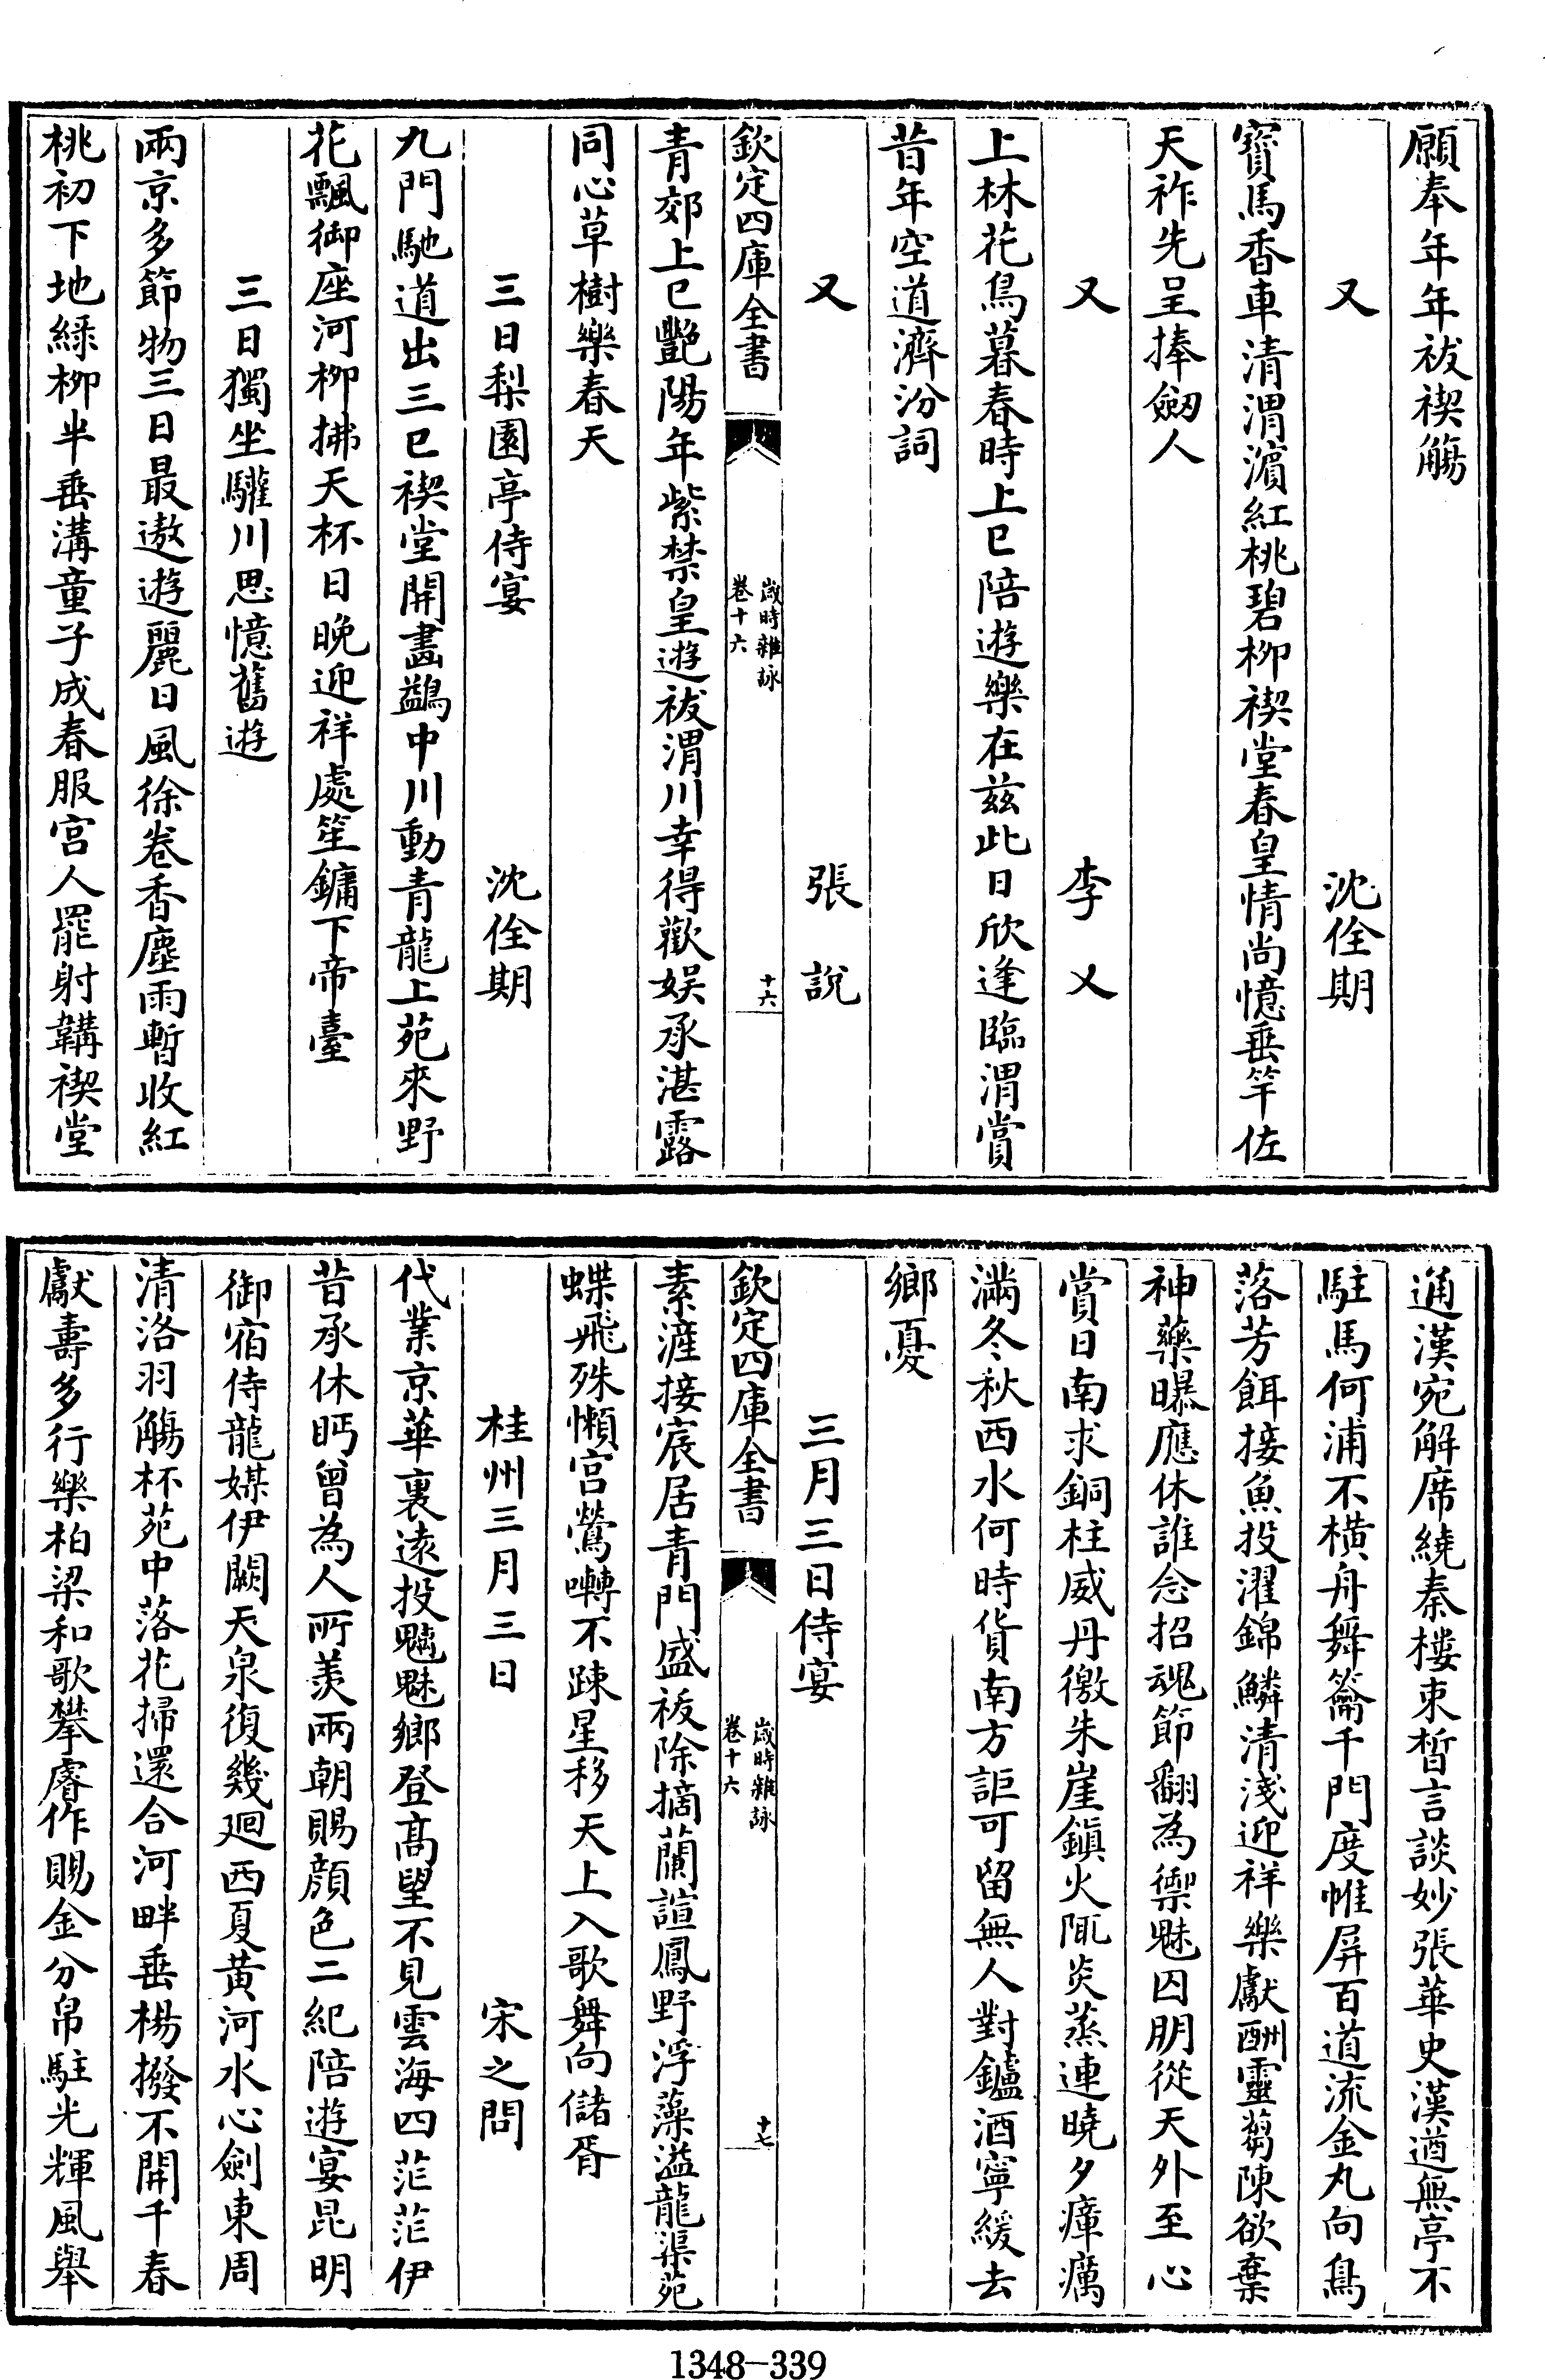 願奉年年祓禊觴
又　沈佺期
寳馬香車清渭濵紅桃碧柳禊堂春皇情尚憶垂竿佐
天祚先呈捧劒人
又　李乂
上林花鳥暮春時上巳陪遊樂在兹此日欣逢臨渭賞
昔年空道濟汾詞
又　張說
欽定四庫全書　歲時雜詠卷十六　十六
青郊上巳艶陽年紫禁皇遊祓渭川幸得歡娱承湛露
同心草樹樂春天
三日梨園亭侍宴　沈佺期
九門馳道出三巳禊堂開畵鷁中川動青龍上苑來野
花飄御座河柳拂天杯日晚迎祥處笙鏞下帝臺
三日獨坐驩川思憶舊遊
兩京多節物三日最遨遊麗日風徐卷香塵雨暫收紅
桃初下地緑柳半垂溝童子成春服宫人罷射韝禊堂
通漢宛解席繞秦樓束晳言談妙張華史漢遒無亭不
駐馬何浦不横舟舞籥千門度帷屏百道流金丸向鳥
落芳餌接魚投濯錦鱗清淺迎祥樂獻酬靈蒭陳欲棄
神藥曝應休誰念招魂節翻為禦魅囚朋從天外至心
賞日南求銅柱威丹徼朱崖鎮火陬炎蒸連曉夕瘴癘
滿冬秋西水何時貨南方詎可留無人對鑪酒寧緩去
鄉憂
三月三日侍宴
欽定四庫全書　歲時雜詠卷十六　十七
素滻接宸居青門盛祓除摘蘭諠鳳野浮藻溢龍渠苑
蝶飛殊懶宫鶯囀不疎星移天上入歌舞向儲胥
桂州三月三日　宋之問
代業京華裏逺投魑魅鄉登髙望不見雲海四茫茫伊
昔承休眄曾為人所羨兩朝賜顔色二紀陪遊宴昆明
御宿侍龍媒伊闕天泉復幾廻西夏黄河水心劍東周
清洛羽觴杯苑中落花掃還合河畔垂楊撥不開千春
獻壽多行樂柏梁和歌攀睿作賜金分帛駐光輝風舉
1348-339